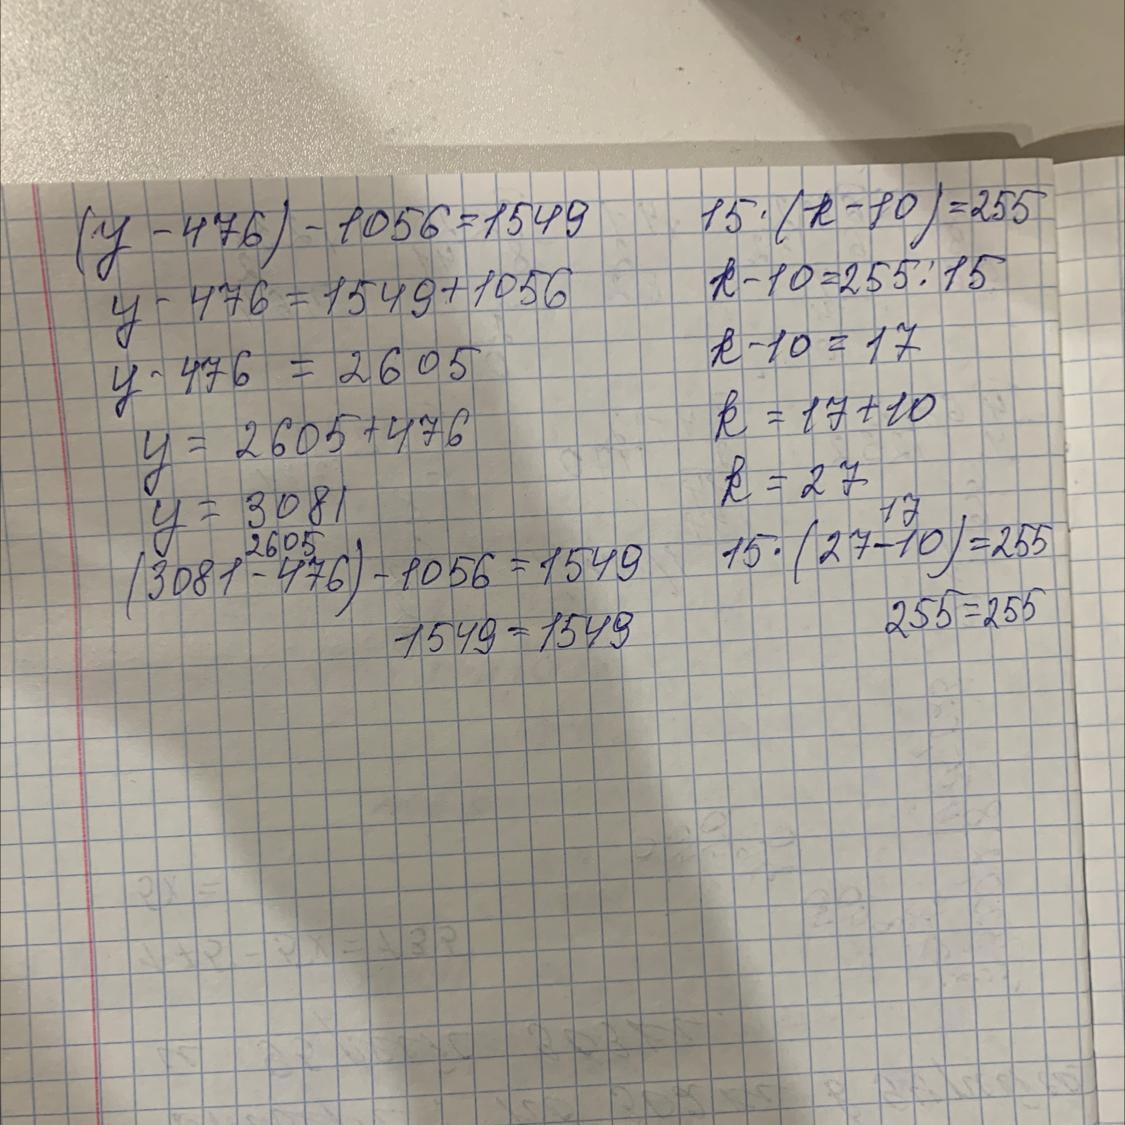 (y - 476) - 1056 = 1549
y - 476 = 1549 + 1056
y - 476 = 2605
y = 2605 + 476
y = 3081
2605
(3081 - 476) - 1056 = 1549
1549 = 1549
15 · (k - 10) = 255
k - 10 = 255 : 15
k - 10 = 17
k = 17 + 10
k = 27
17
15 · (27 - 10) = 255
255 = 255